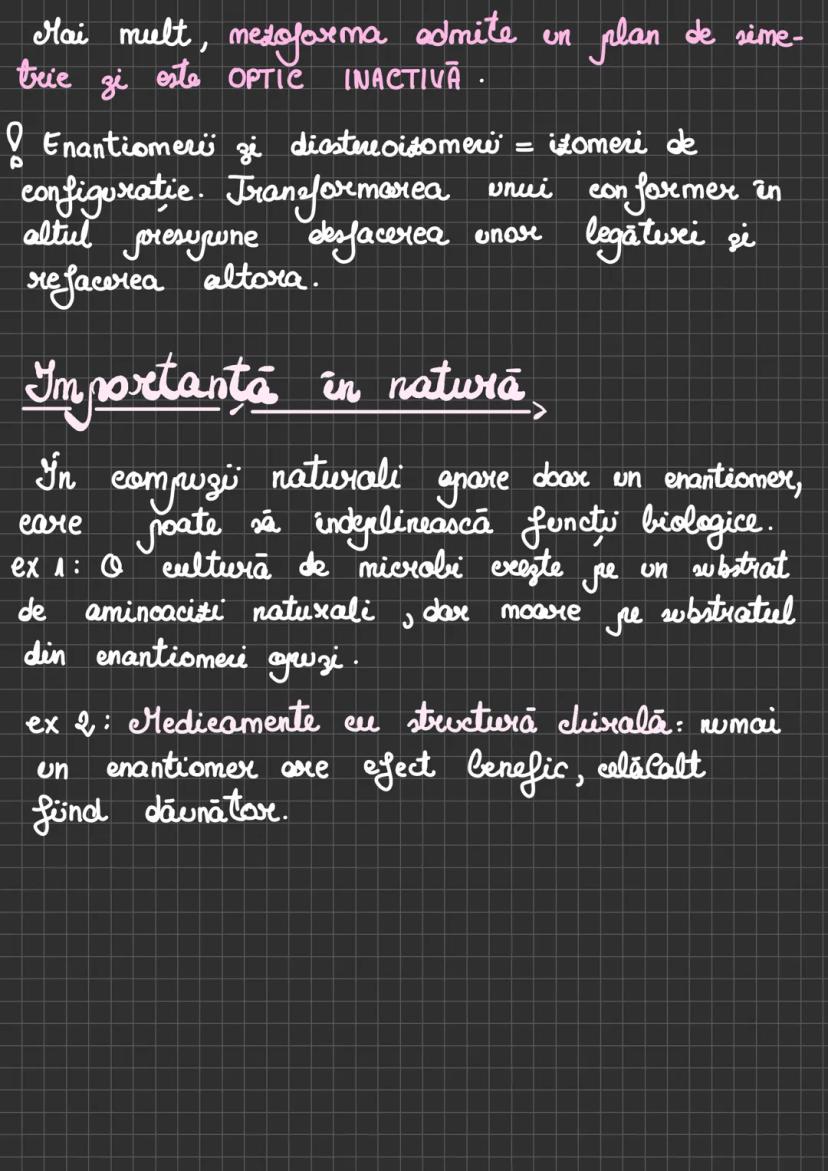 Mai mult, mezoforma admite un plan de sime-
trie și este OPTIC INACTIVĂ.
! Enantiomerii și diastereoizomerii = izomeri de
configurație. Transformarea unui conformer în
altul presupune desfacerea unor legături și
refacerea altora.
Importanță în natură
În compușii naturali apare doar un enantiomer,
care poate să îndeplinească funcții biologice.
ex 1: O cultură de microbi crește pe un substrat
de aminoacizi naturali, dar moare pe substratul
din enantiomeri opuși.
ex 2: Medicamente cu structură chirală: numai
un enantiomer are efect benefic, celălalt
fiind dăunător.